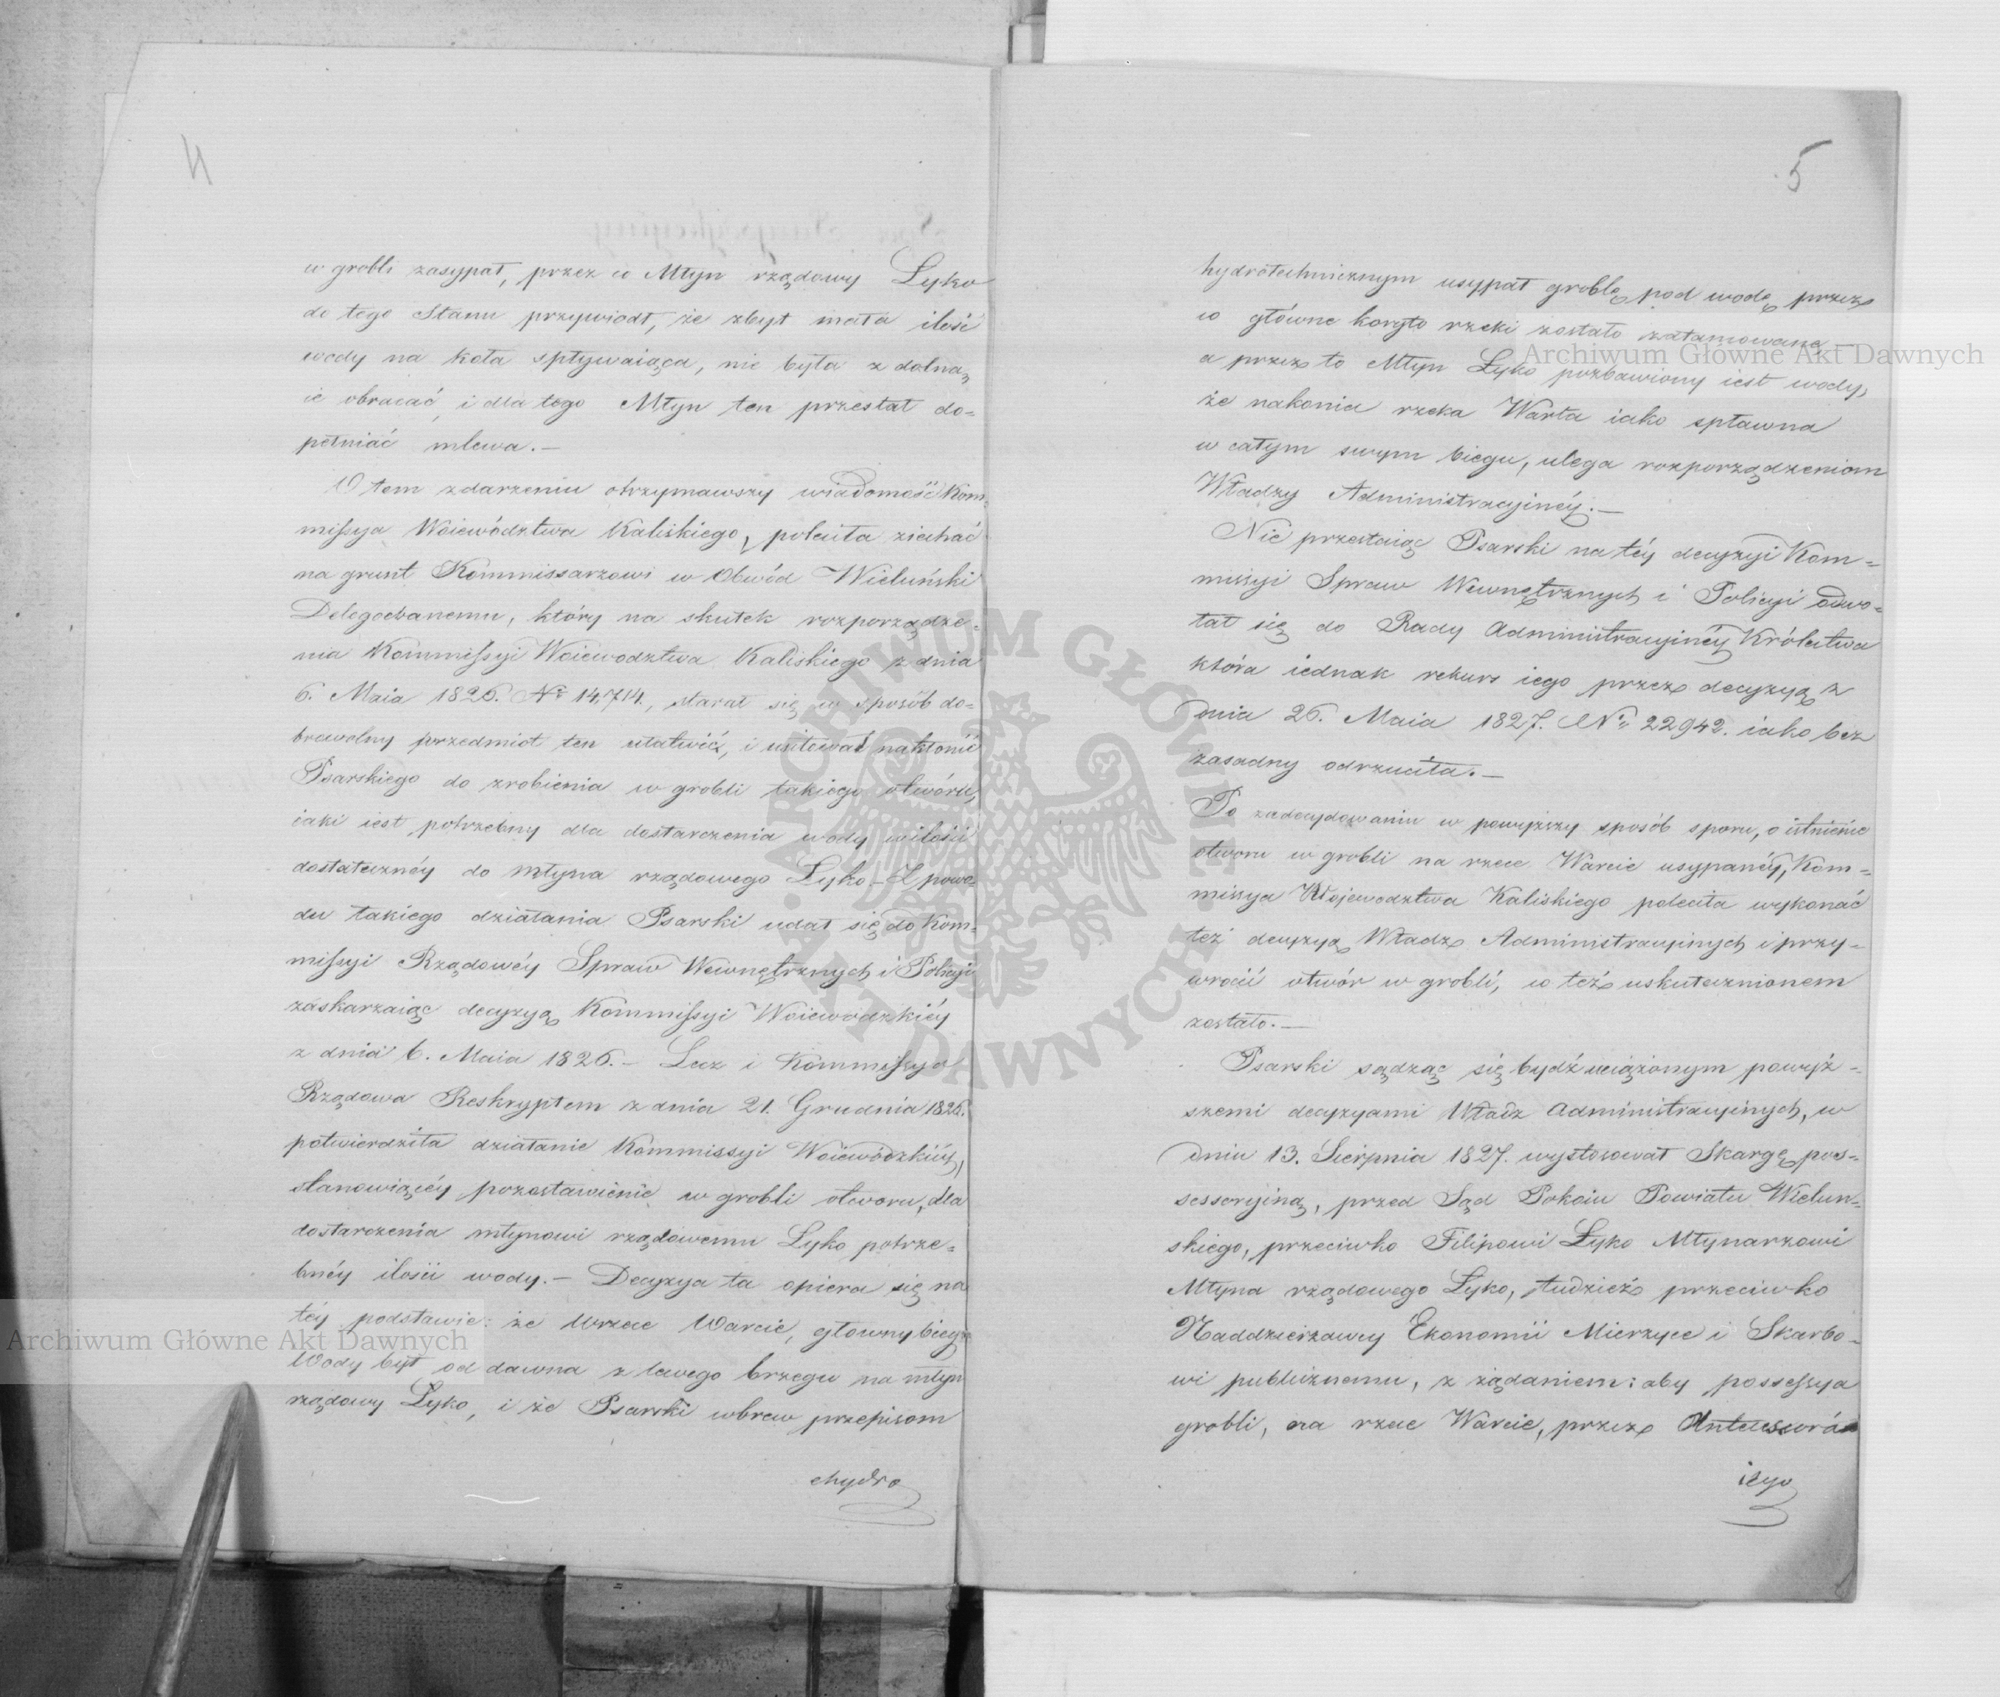 4
w grobli zasypał, przez co Młyn rządowy Łyko
do tego Stanu przywiodł, że zbyt mała ilość
wody na koła spływaiąca, nie była zdolną
ie obracać, i dla tego Młyn ten przestał do=
pełniać mlewa.—
O tem zdarzeniu otrzymawszy wiadomość Kom=
missya Woiewództwa Kaliskiego, poleciła ziechać
na grunt Kommissarzowi w Obwód Wieluński
Delegowanemu, który na skutek rozporządze=
nia Kommissyi Woiewodztwa Kaliskiego z dnia
6. Maia 1826. No 14,714., starał się w sposób do=
browolny przedmiot ten ułatwić, i usiłował nakłonić
Psarskiego do zrobienia w grobli takiego otworu,
iaki iest potrzebny dla dostarczenia wody w ilości
dostatecznéy do młyna rządowego Łyko – Z powo=
du takiego działania Psarski udał się do Kom=
missyi Rządowéy Spraw Wewnętrznych i Policyi
zaskarzaiąc decyzyą Kommissyi Woiewodzkiéy
z dnia 6. Maia 1826.— Lecz i Kommissya
Rządowa Reskryptem z dnia 21. Grudnia 1826.
potwierdziła działanie Kommissyi Woiewódzkiéy,
stanowiącéy pozostawienie w grobli otworu, dla
dostarczenia młynowi rządowemu Łyko potrze=
bnéy ilości wody.— Decyzya ta opiera się na
téy podstawie: że w rzece Warcie, głowny bieg
Wody był od dawna z lewego brzegu na młyn
rządowy Łyko, i że Psarski wbrew przepisom
hydro
5
hydrotechnicznym usypał groblę pod wodę, przez
co główne koryto rzeki zostało zatamowane —
a przez to Młyn Łyko pozbawiony iest wody,
że nakonia rzeka Warta iako spławna
w całym swym biegu, ulega rozporządzeniom
Władzy Administracyinéy.—
Nie przestaiąc Psarski na téy decyzyi Kom=
missyi Spraw Wewnętrznych i Policyi odwo=
łał się do Rady Administracyinéy Królestwa
która iednak rekurs iego przez decyzyą z
dnia 26. Maia 1827. No 22942. iako bez
zasadny odrzuciła.—
Po zadecydowaniu w powyższy sposób sporu, o istnienie
otworu w grobli na rzece Warcie usypanéy, Kom=
missya Wojewodztwa Kaliskiego poleciła wykonać
też decyzyą Władz Administracyinych i przy=
wrócić otwór w grobli, co też uskutecznionem
zostało.—
Psarski sądząc się bydź uciążonym powyż=
szemi decyzyami Władz Administracyinych, w
dniu 13. Sierpnia 1827. wystosował Skargę pos=
sessoryiną, przed Sąd Pokoiu Powiatu Wieluń=
skiego, przeciwko Filipowi Łyko Młynarzowi
Młyna rządowego Łyko, tudzież przeciwko
Naddzierżawcy Ekonomii Mierzyce i Skarbo=
wi publicznemu, z żądaniem: aby possessya
grobli, na rzece Warcie, przez Antecessorá
iego
Archiwum Główne Akt Dawnych
Archiwum Główne Akt Dawnych
ARCHIWUM GŁÓWNE
AKT DAWNYCH